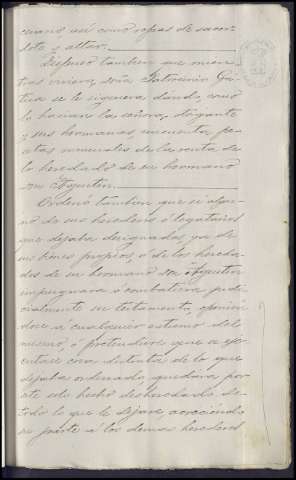 cuano, así como ropas de sacer-
dote y altar.
Dispuso tambien que mien-
tras viviera, doña Patrocinio Gá-
tica se le siguiera dando, como
lo hacian la señora otorgante
y sus hermanas, cincuenta pe-
setas mensuales de la renta de
lo heredado de su hermano
don Agustin.
Ordenó tambien que si algu-
no de sus herederos ó legatarios
que dejaba designados, ya de
sus bienes propios, ó de los hereda-
dos de su hermano don Agustin
impugnara ó combatiera judi-
cialmente su testamento, oponién-
dose á cualquier estremo del
mismo, ó pretendiere que se eje-
cutase cosa distinta de lo que
dejaba ordenado, quedara por
este solo hecho desheredado de
todo lo que le dejare, acreciendo
su parte á los demas herederos